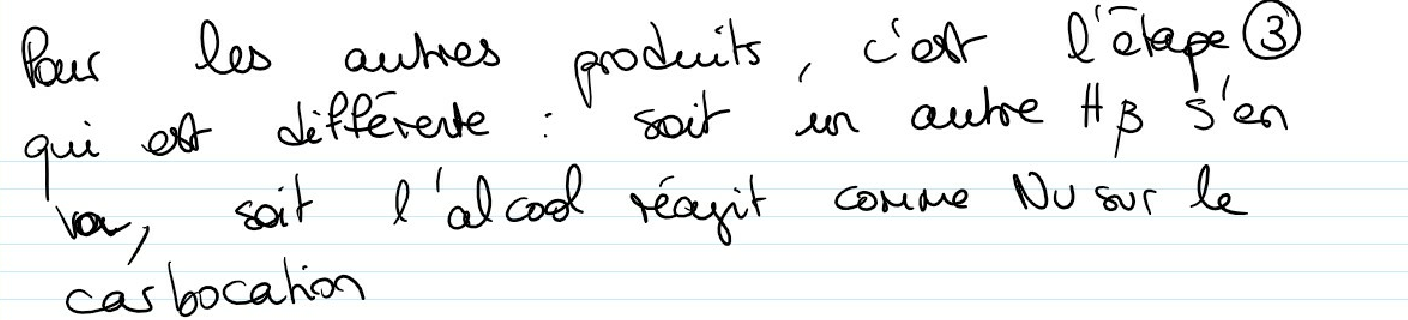 Pour les autres produits, c'est l'étape ③
qui est différente : soit un autre H β s'en
va, soit l'alcool réagit comme Nu sur le
carbocation